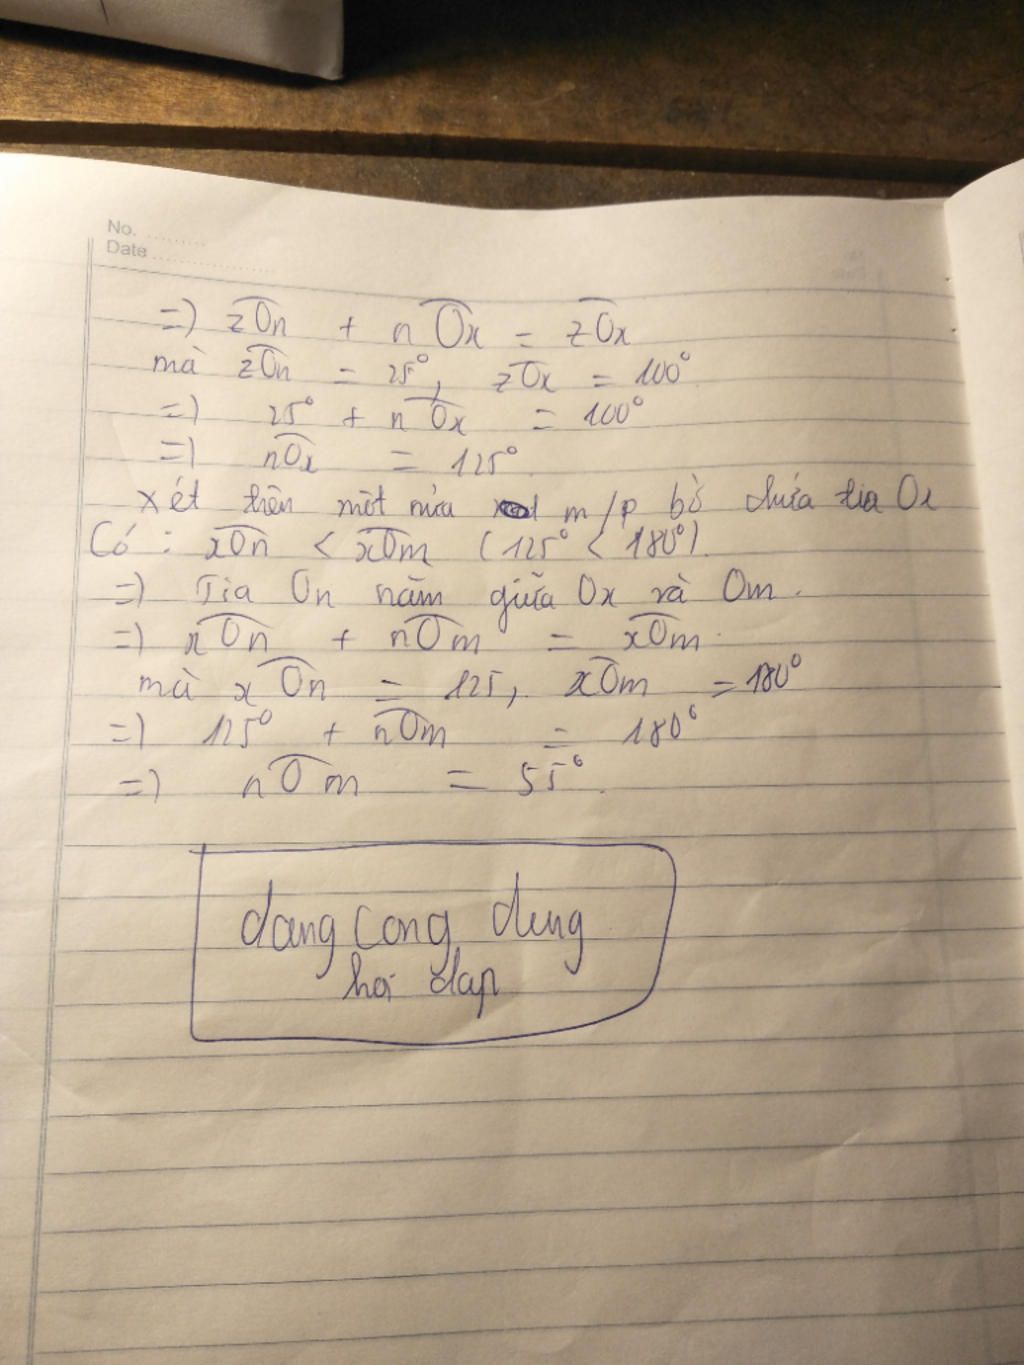 No. ........
Date ................
=) zOn + nOx = zOx
mà zOn = 25°, zOx = 100°
=) 25° + nOx = 100°
=) nOx = 125°
xét trên một nửa m/p bờ chứa tia Ox
Có : xOn < xOm (125° < 180°).
=) Tia On nằm giữa Ox và Om.
=) xOn + nOm = xOm.
mà xOn = 125, xOm = 180°
=) 125° + nOm = 180°
=) nOm = 55°.
dang cong dung
hoi dap